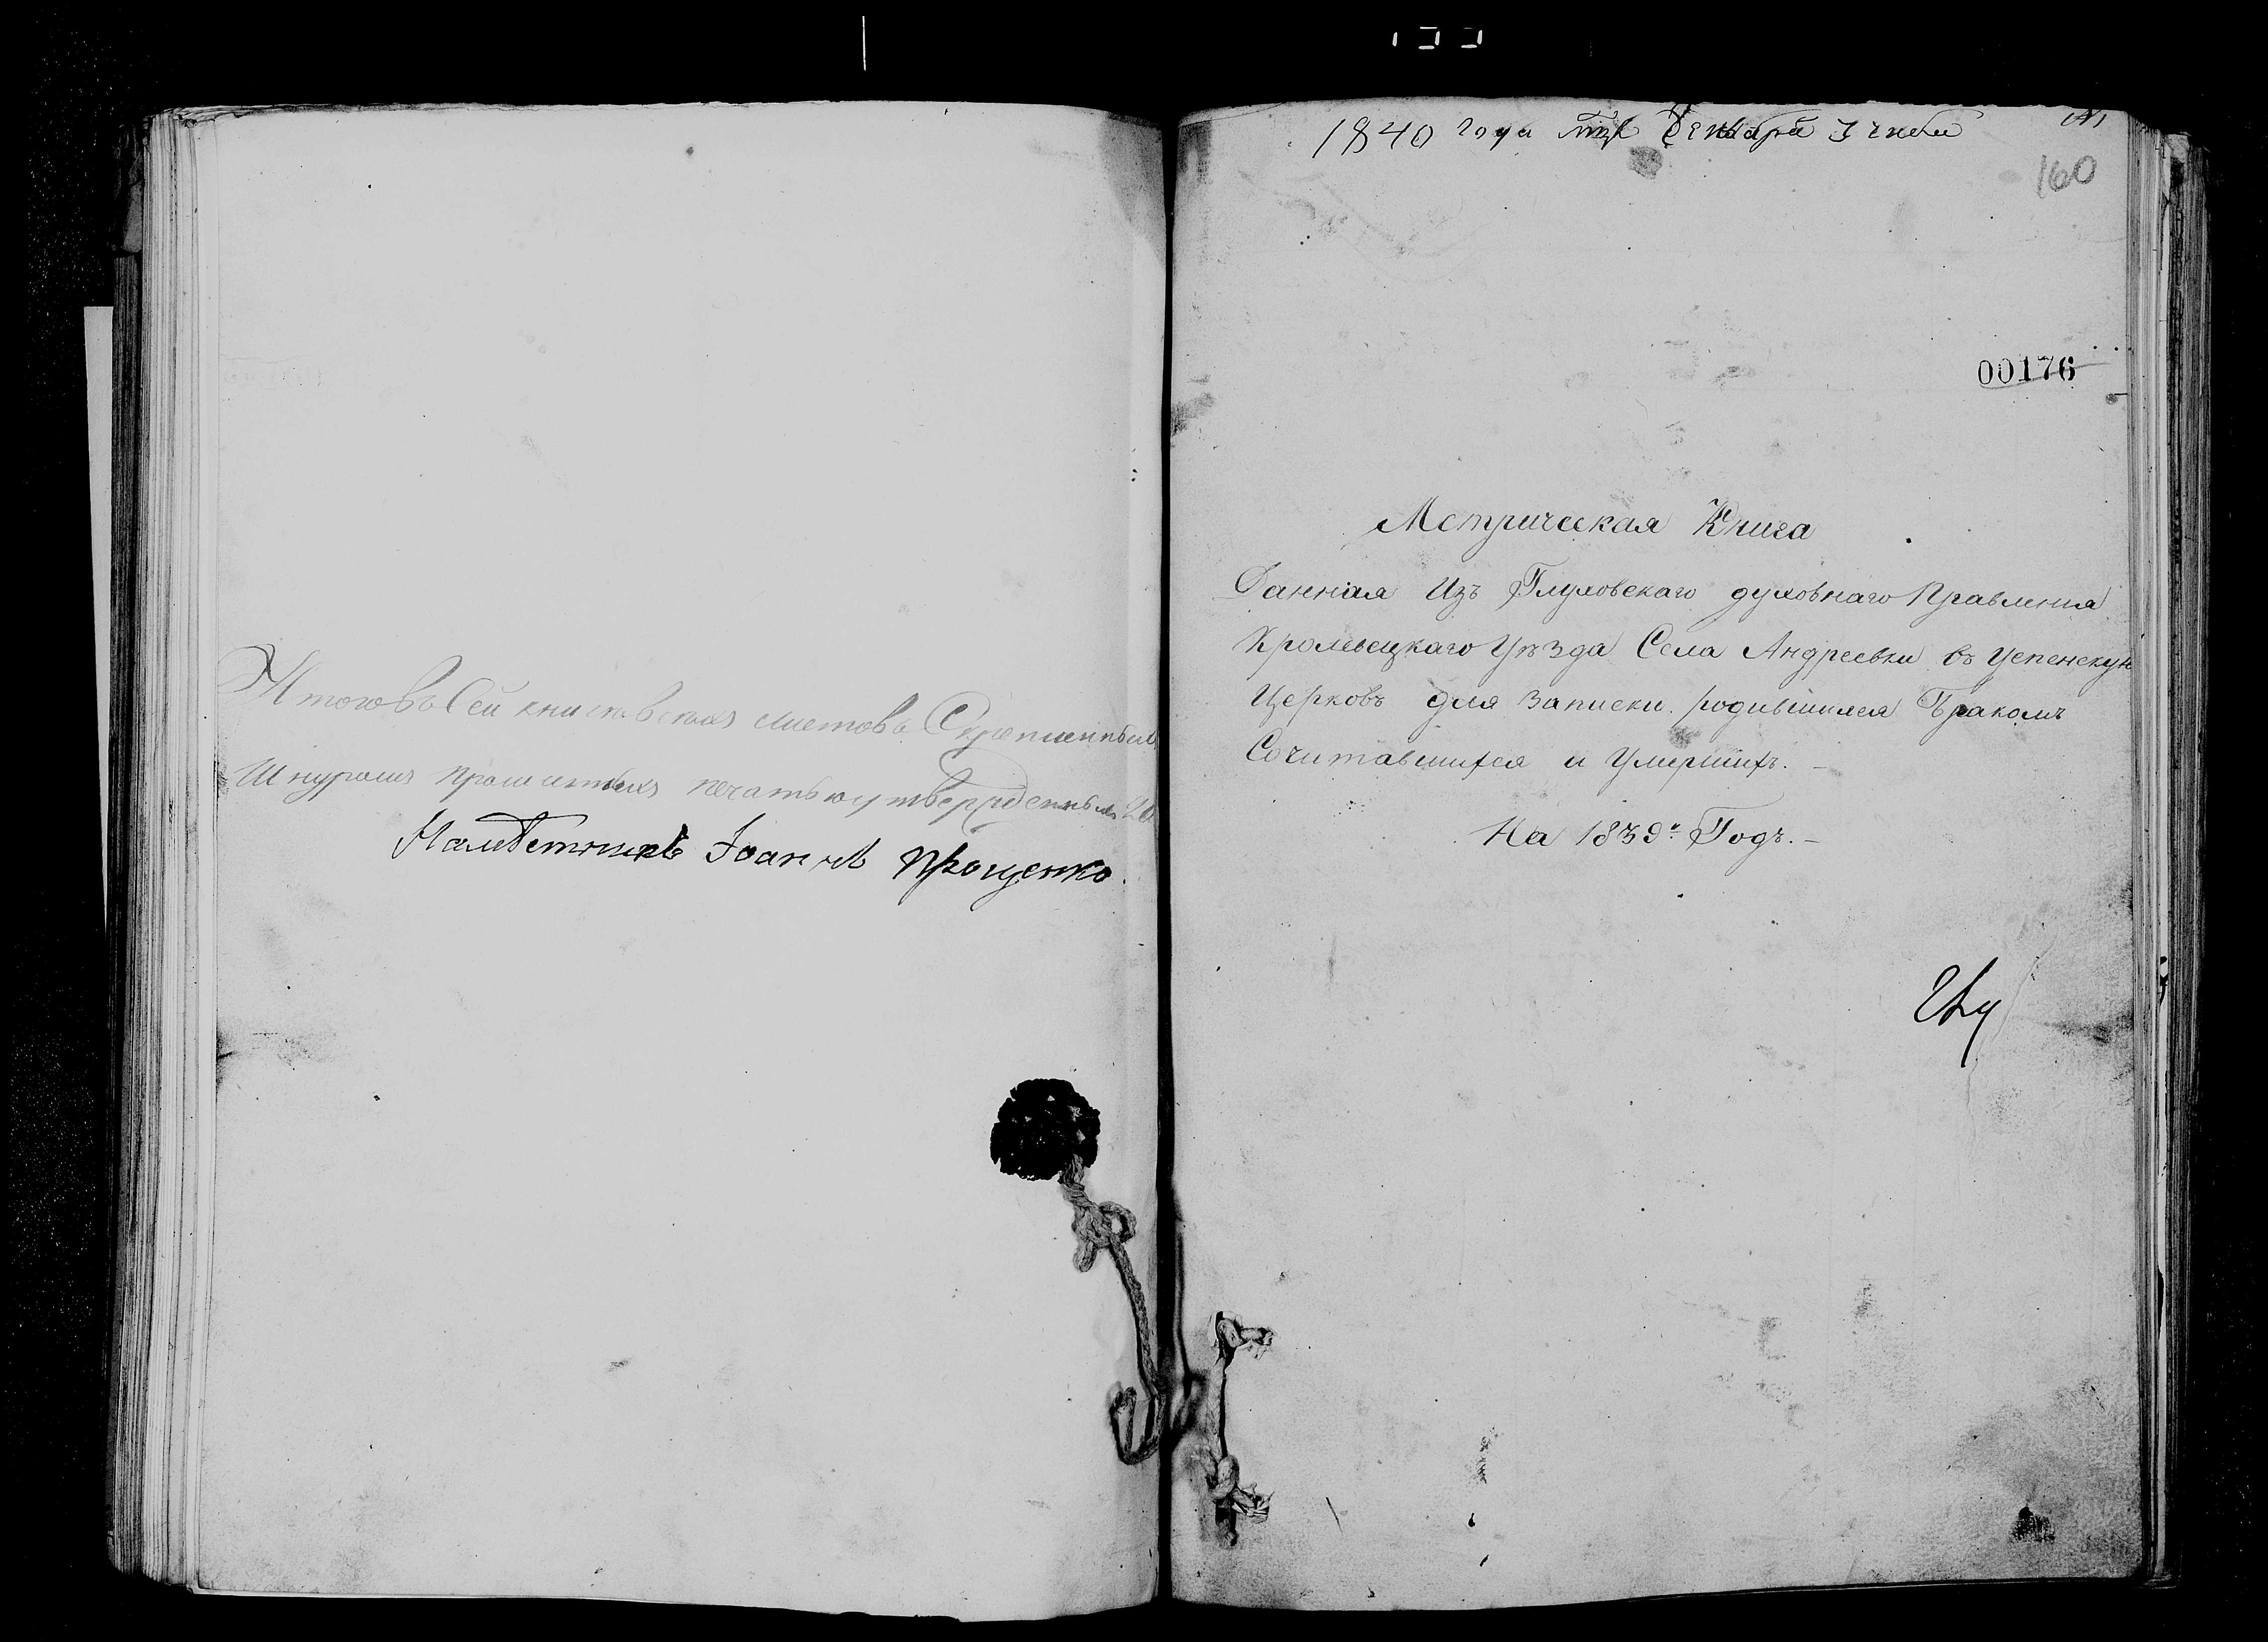 Итого въ сей книге всехъ листовъ Скрепленныхъ
Шнуромъ прошитыхъ печатью утвержденныхъ 20
Наместникъ Іоаннъ Прощенко.
1840 года Генваря 3 числа
160
00176
Метрическая Книга
Данная Изъ Глуховскаго духовнаго Правления
Кролевецкаго Уѣзда Села Андреевки въ Успенскую
Церковь для Записки родившихся Бракомъ
Сочитавшихся и Умершихъ. –
На 1839й Годъ. –